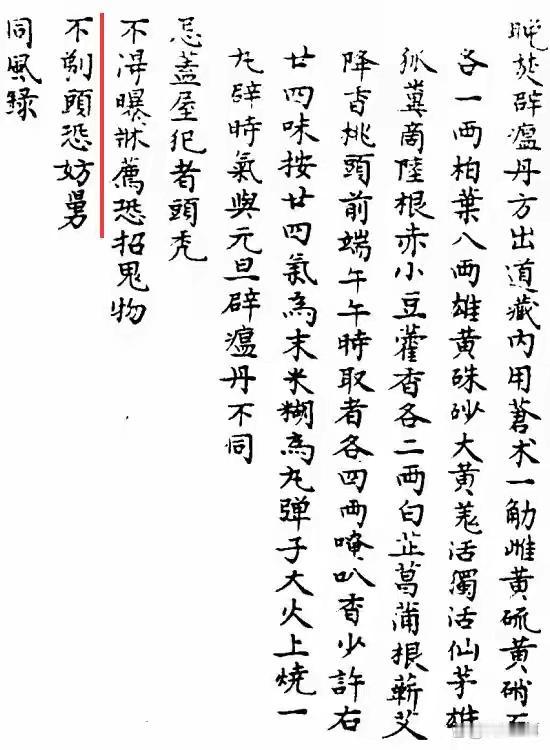 晚焚辟瘟丹方出道藏內用蒼朮一觔雌黃硫黃硝石
各一兩柏葉八兩雄黃硃砂大黃羗活獨活仙茅雄
狐糞商陸根赤小豆藿香各二兩白芷菖蒲根蘄艾
降香桃頭前端午午時取者各四兩唵叭香少許右
廿四味按廿四氣為末米糊為丸彈子大火上燒一
丸辟時氣與元旦辟瘟丹不同
忌蓋屋犯者頭禿
不淂曝牀薦恐招鬼物
不剃頭恐妨舅
同風錄